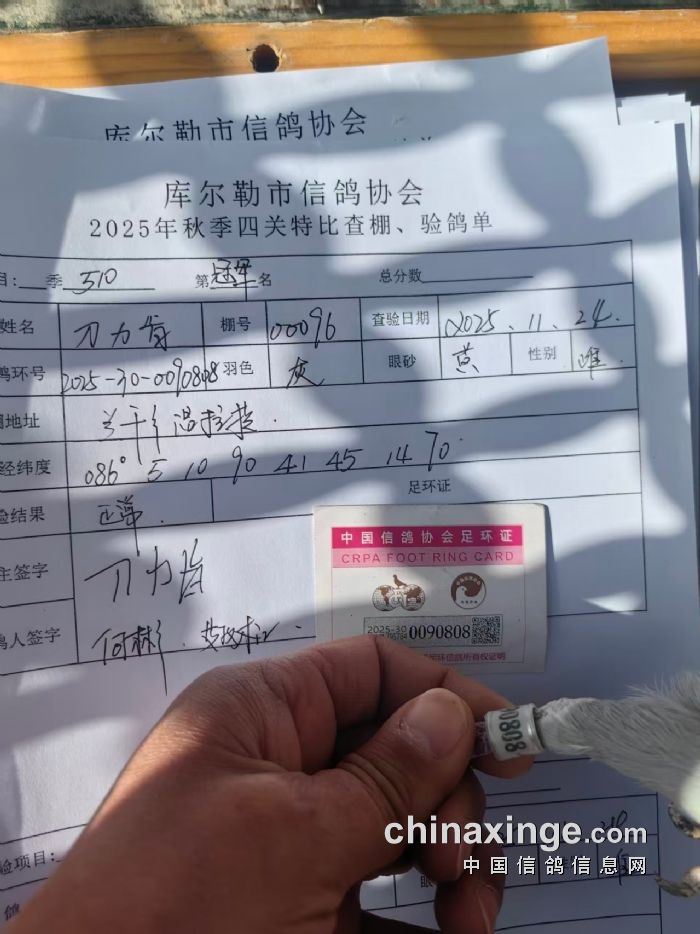 库尔勒市信鸽协会
库尔勒市信鸽协会
2025年秋季四关特比查棚、验鸽单
目: 季 510 第 冠军 名 总分数
姓名 刀力肯 棚号 00096 查验日期 2025.11.24.
鸽环号 2025-30-0090808 羽色 灰 眼砂 黄 性别 雄.
地址
经纬度 086° 5 10 90 41 45 14 70
验结果 正常. 足环证
主签字 刀力肯
鸽人签字 何彬.
中国信鸽协会足环证
CRPA FOOT RING CARD
2025-30 0090808
国信鸽所有权证明
0808
验项目:
chinaxinge.com
中国信鸽信息网